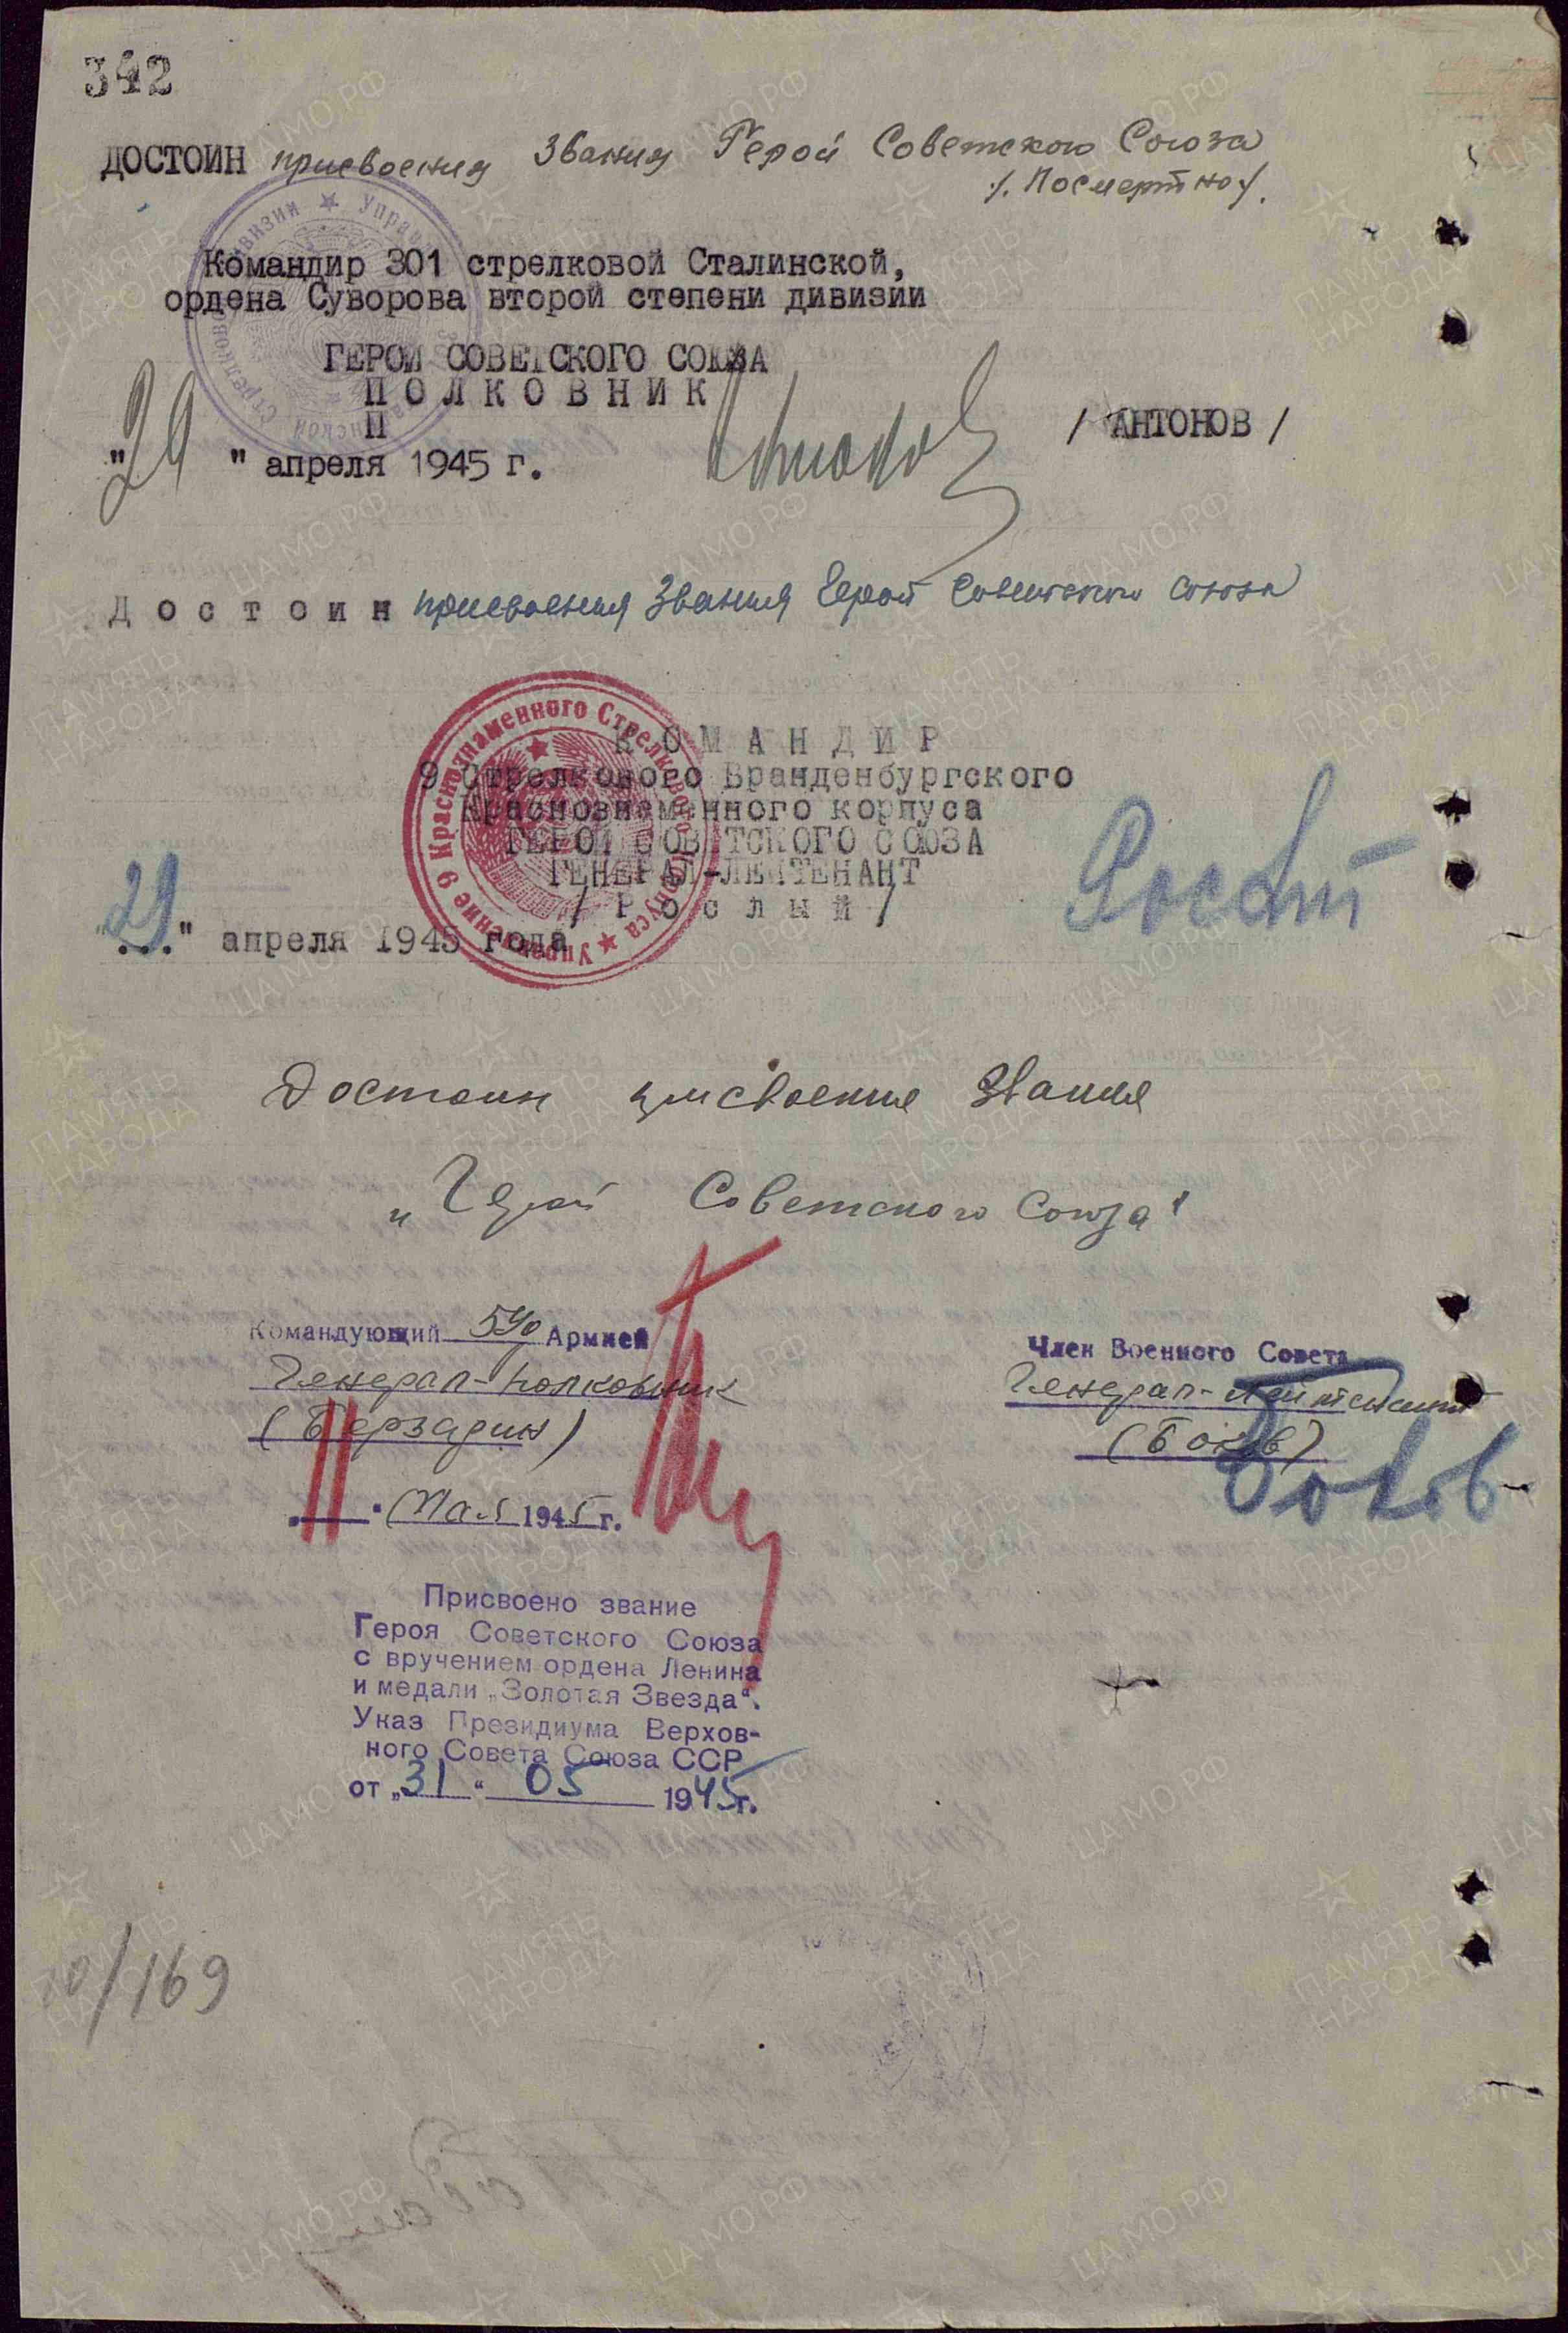 342
ДОСТОИН присвоения звания Герой Советского Союза
/. Посмертно /.
Командир 301 стрелковой Сталинской,
ордена Суворова второй степени дивизии
ГЕРОЙ СОВЕТСКОГО СОЮЗА
ПОЛКОВНИК
П
/ АНТОНОВ /
"29" апреля 1945 г.
Достоин присвоения звания Герой Советского Союза
КОМАНДИР
9 Стрелкового Бранденбургского
Краснознаменного корпуса
ГЕРОЙ СОВЕТСКОГО СОЮЗА
ГЕНЕРАЛ-ЛЕЙТЕНАНТ
/ Рослый /
"29" апреля 1945 года
Управление 9 Краснознаменного Стрелкового Корпуса
Достоин присвоения звания
„Герой Советского Союза"
Командующий 5 Уд Армией
Генерал-полковник
(Берзарин)
"11" Мая 1945 г.
Член Военного Совета
Генерал-лейтенант
(Боков)
Боков
Присвоено звание
Героя Советского Союза
с вручением ордена Ленина
и медали „Золотая Звезда".
Указ Президиума Верхов-
ного Совета Союза ССР
от „31" 05 1945г.
/169
ПАМЯТЬ НАРОДА
ЦА МО.РФ